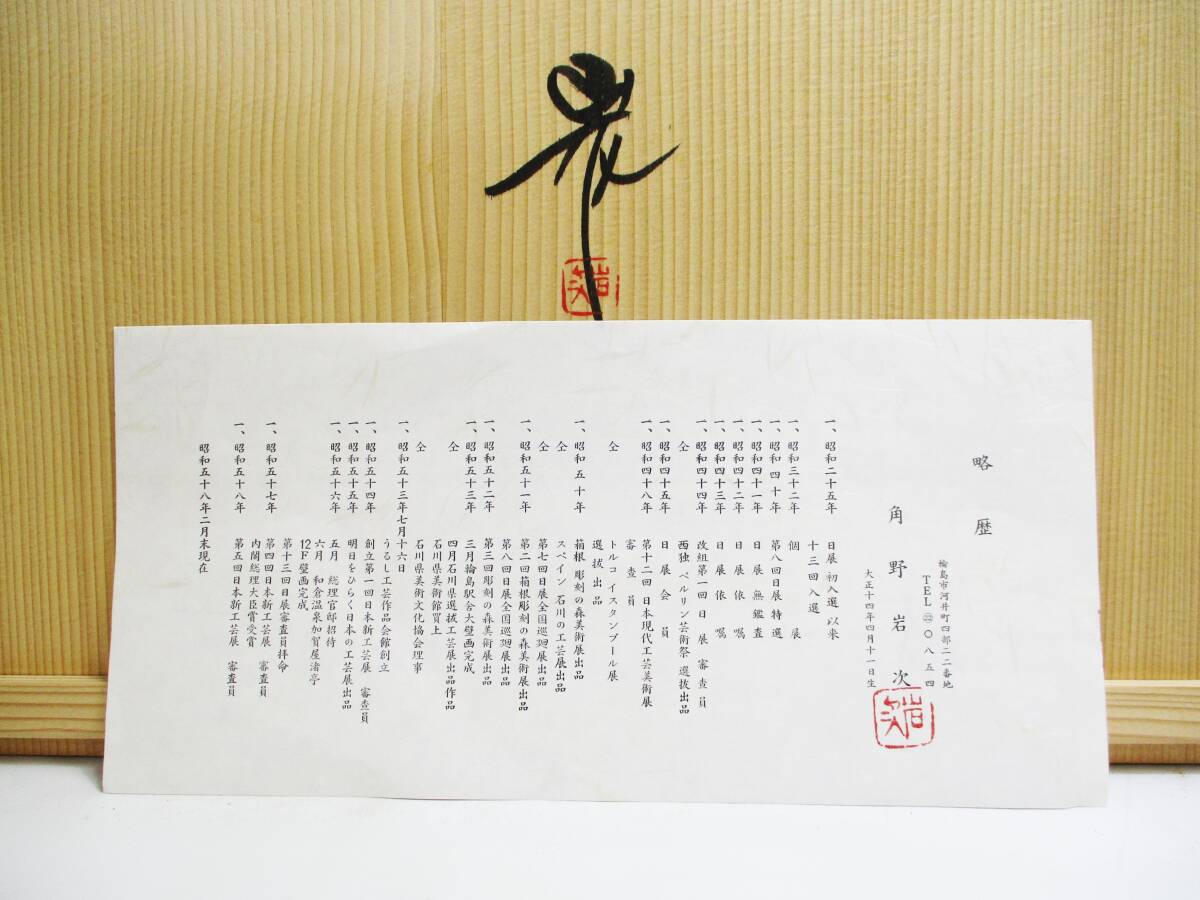 略歴
輪島市河井町四部二二番地
TEL ㉒〇八五四
角野岩次
大正十四年四月十一日生
一、昭和二十五年 日展初入選以来
十三回入選
一、昭和三十二年 個展
一、昭和四十年 第八回日展特選
一、昭和四十一年 日展無鑑査
一、昭和四十二年 日展依嘱
一、昭和四十三年 日展依嘱
一、昭和四十四年 改組第一回日展審査員
仝 西独 ベルリン芸術祭 選抜出品
一、昭和四十五年 日展会員
一、昭和四十八年 第十二回 日本現代工芸美術展
審査員
仝 トルコ イスタンブール展
選抜出品
一、昭和五十年 箱根 彫刻の森美術展出品
仝 スペイン 石川の工芸展出品
仝 第七回日展全国巡廻展出品
一、昭和五十一年 第二回箱根彫刻の森美術展出品
第八回日展全国巡廻展出品
一、昭和五十二年 第三回彫刻の森美術展出品
一、昭和五十三年 三月輪島駅舎大壁画完成
仝 四月石川県選抜工芸展出品作品
石川県美術館買上
仝 石川県美術文化協会理事
一、昭和五十三年七月十六日
うるし工芸作品会館創立
一、昭和五十四年 創立第一回日本新工芸展 審査員
一、昭和五十五年 明日をひらく日本の工芸展出品
一、昭和五十六年 五月 総理官邸招待
六月 和倉温泉加賀屋渚亭
12F壁画完成
第十三回日展審査員拝命
一、昭和五十七年 第四回日本新工芸展 審査員
内閣総理大臣賞受賞
一、昭和五十八年 第五回日本新工芸展 審査員
昭和五十八年二月末現在
岩次